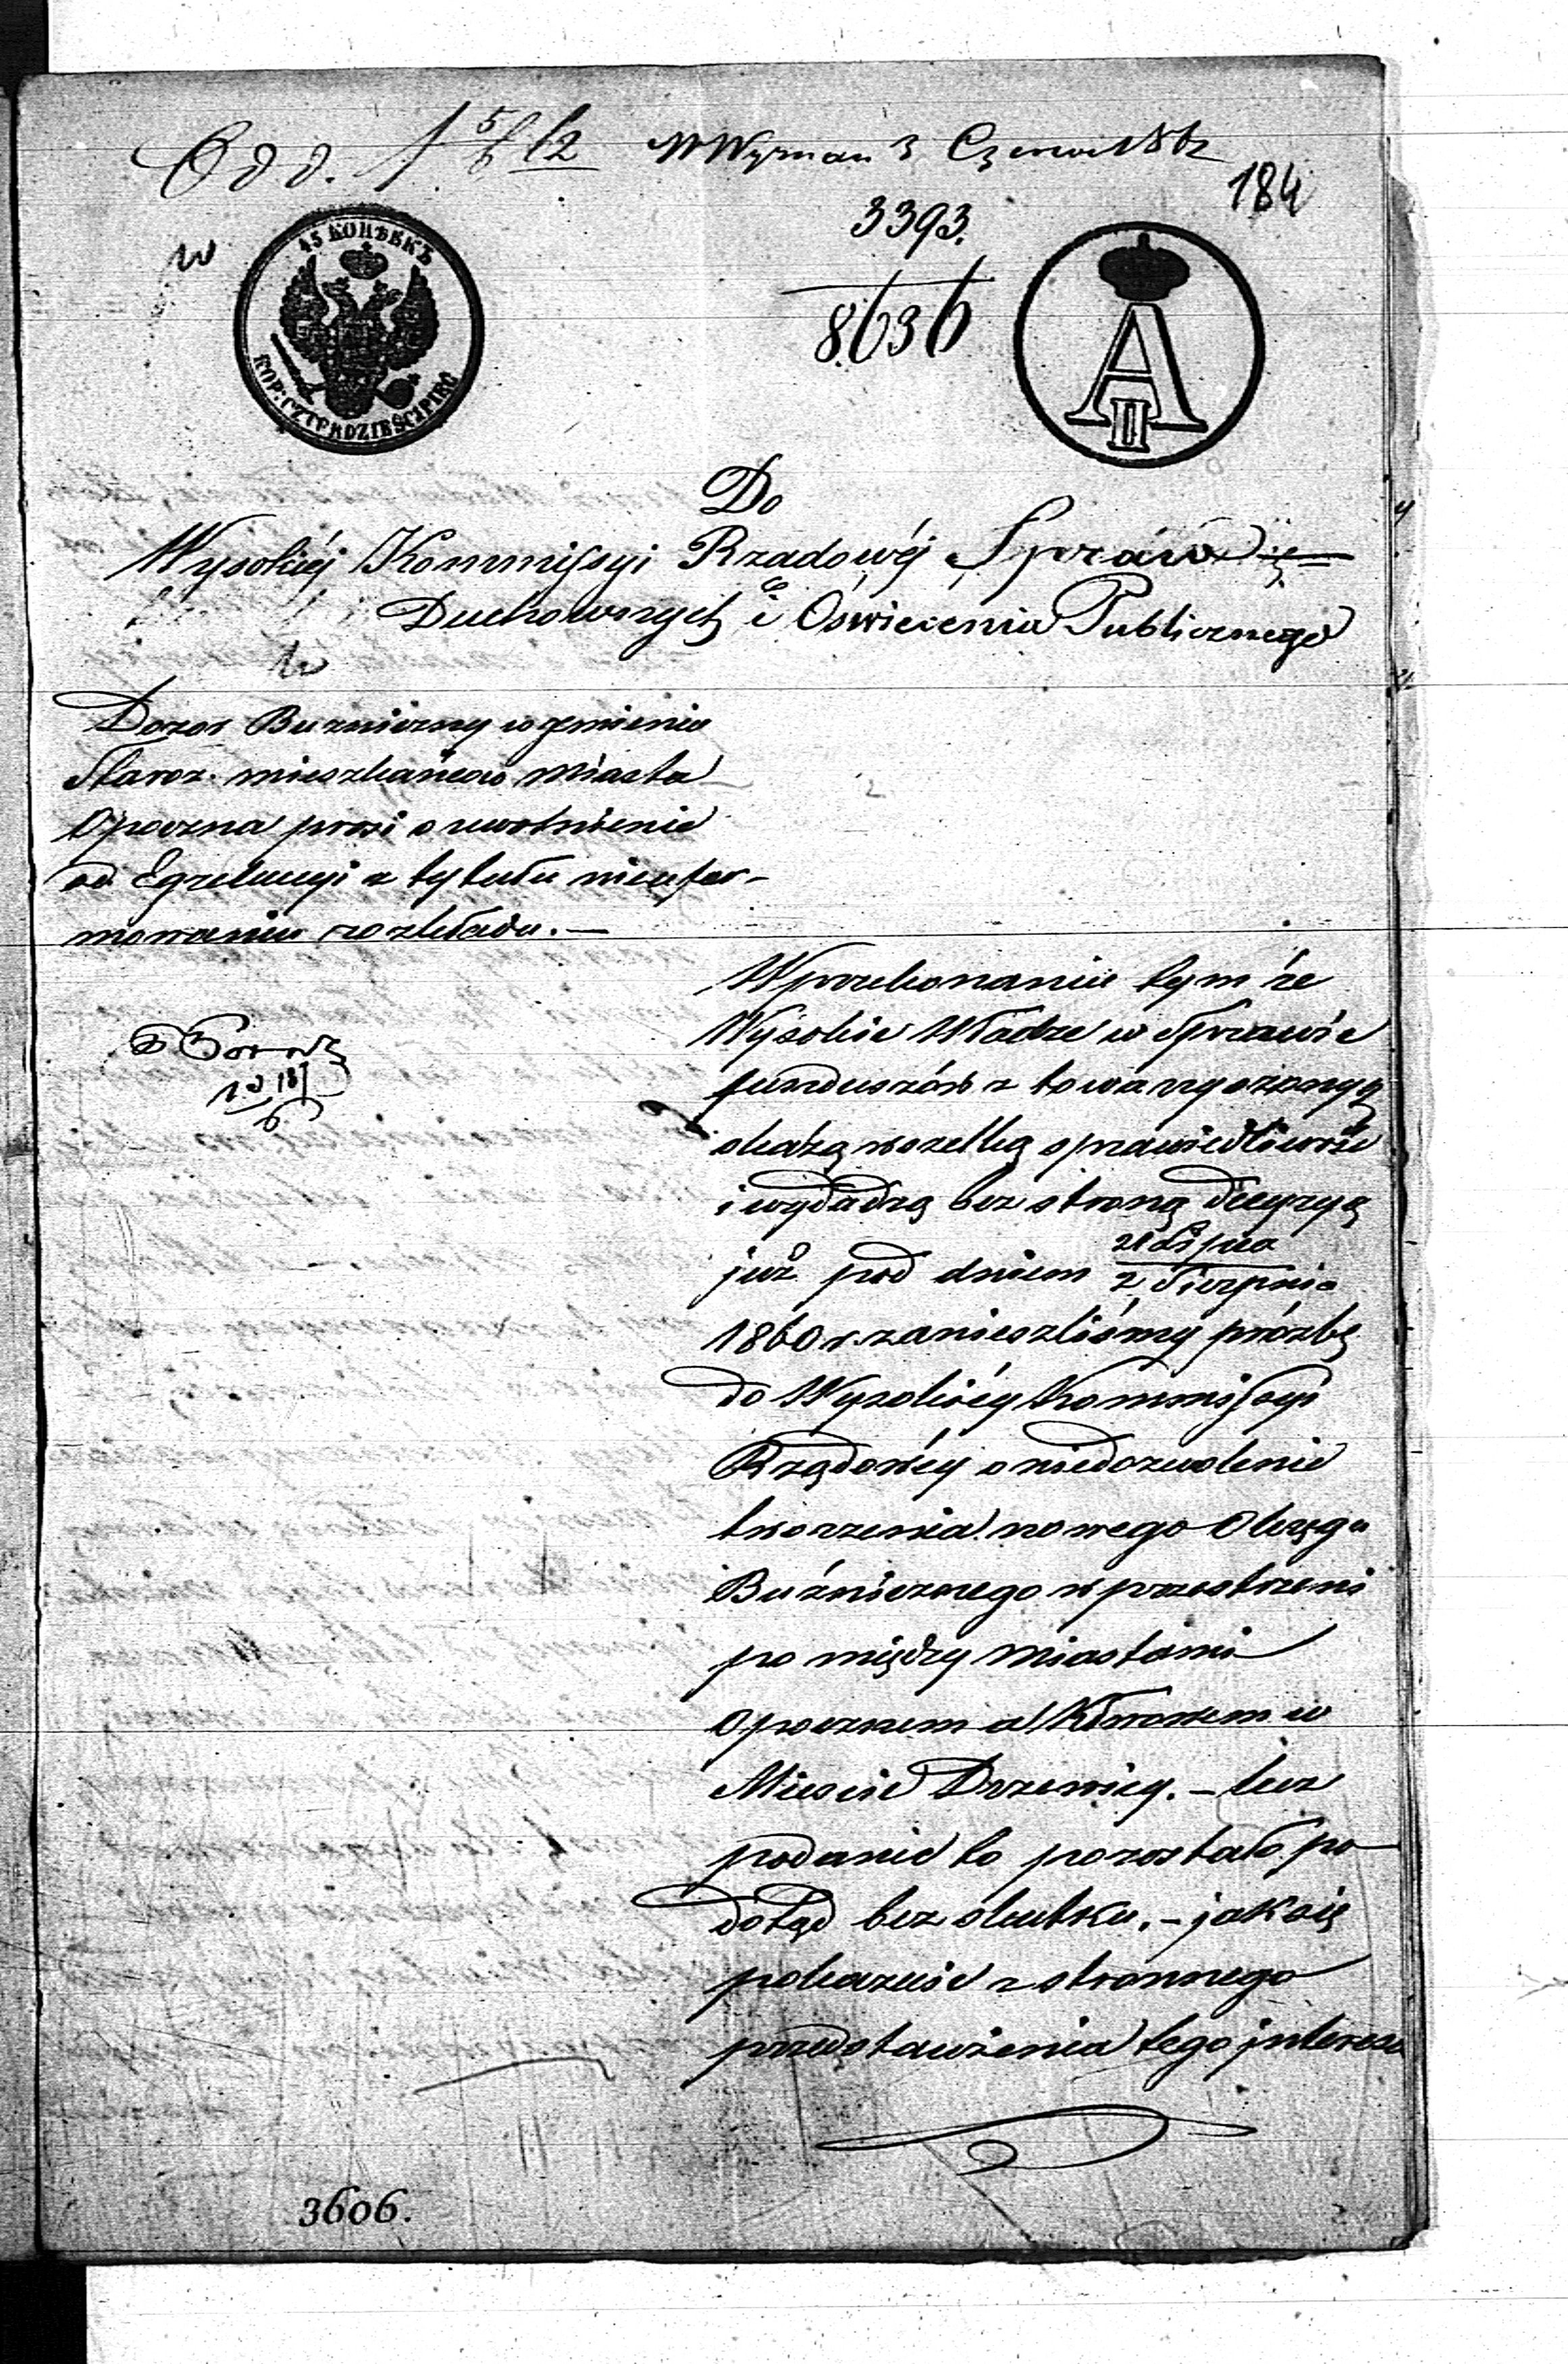 Odd. 1 5/6 62 W Wyznań 3 Czerwca 1862
184
3393.
8636
45 КОПѢЕКЪ
KOP: CZTERDZIEŚCI PIĘĆ
A
II
Do
Wysokiéj Kommissyi Rządowéj Spraw
Duchownych i Oświecenia Publicznego
Dozor Buzniczny w jmieniu
Staroz. mieszkańcow miasta
Opoczna prosi o uwolnienie
od Egzekucyi z tytułu nieufor-
mowania rozkładu. —
W przekonaniu tym że
Wysokie Władze w Sprawie
funduszów z towarzyszonyą
okażą wszelką sprawiedliwość
i wydadzą bez stroną decyzyą
już pod dniem 21 Lipca
2 Sierpnia
1860 r. zanieszliśmy prózbę
do Wysokiéy Kommissyi
Rządowéy o niedozwolenie
tworzenia nowego Okręgu
Buźnicznego w przestrzeni
po między Miastami
Opocznem a Klwowem w
Mieście Drzewicy. – lecz
podanie to pozostało po
dotąd bez skutku. – jak się
pokazuie z stronnego
przedstawienia tego jnteresu
3606.